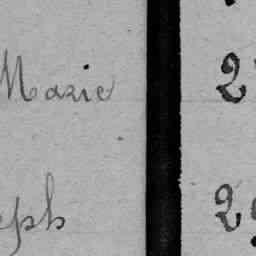 Marie 2
eph 2